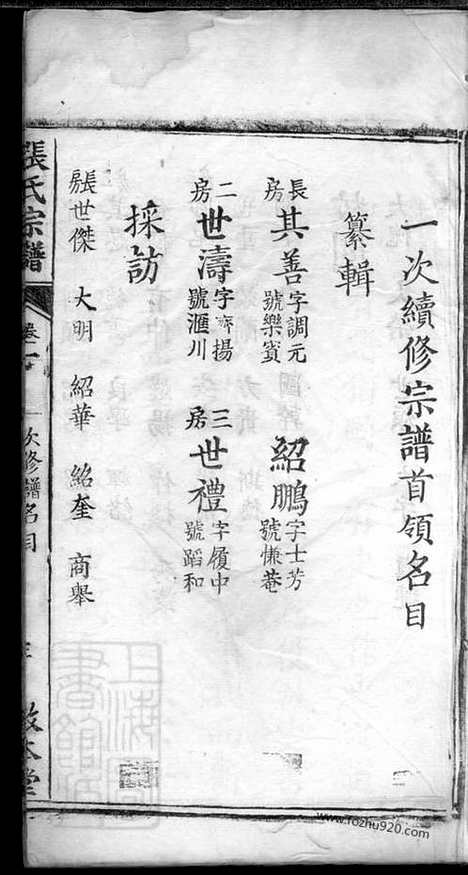 一次續修宗譜首領名目
纂輯
長房 其善 字調元 號樂賓 紹鵬 字士芳 號慊菴
二房 世濤 字揚 號滙川 三房 世禮 字履中 號蹈和
採訪
張世傑 大明 紹華 紹奎 商舉
張氏宗譜 卷一 一次修譜名目 三 敦本堂
上海圖書館藏
www.fozhu920.com